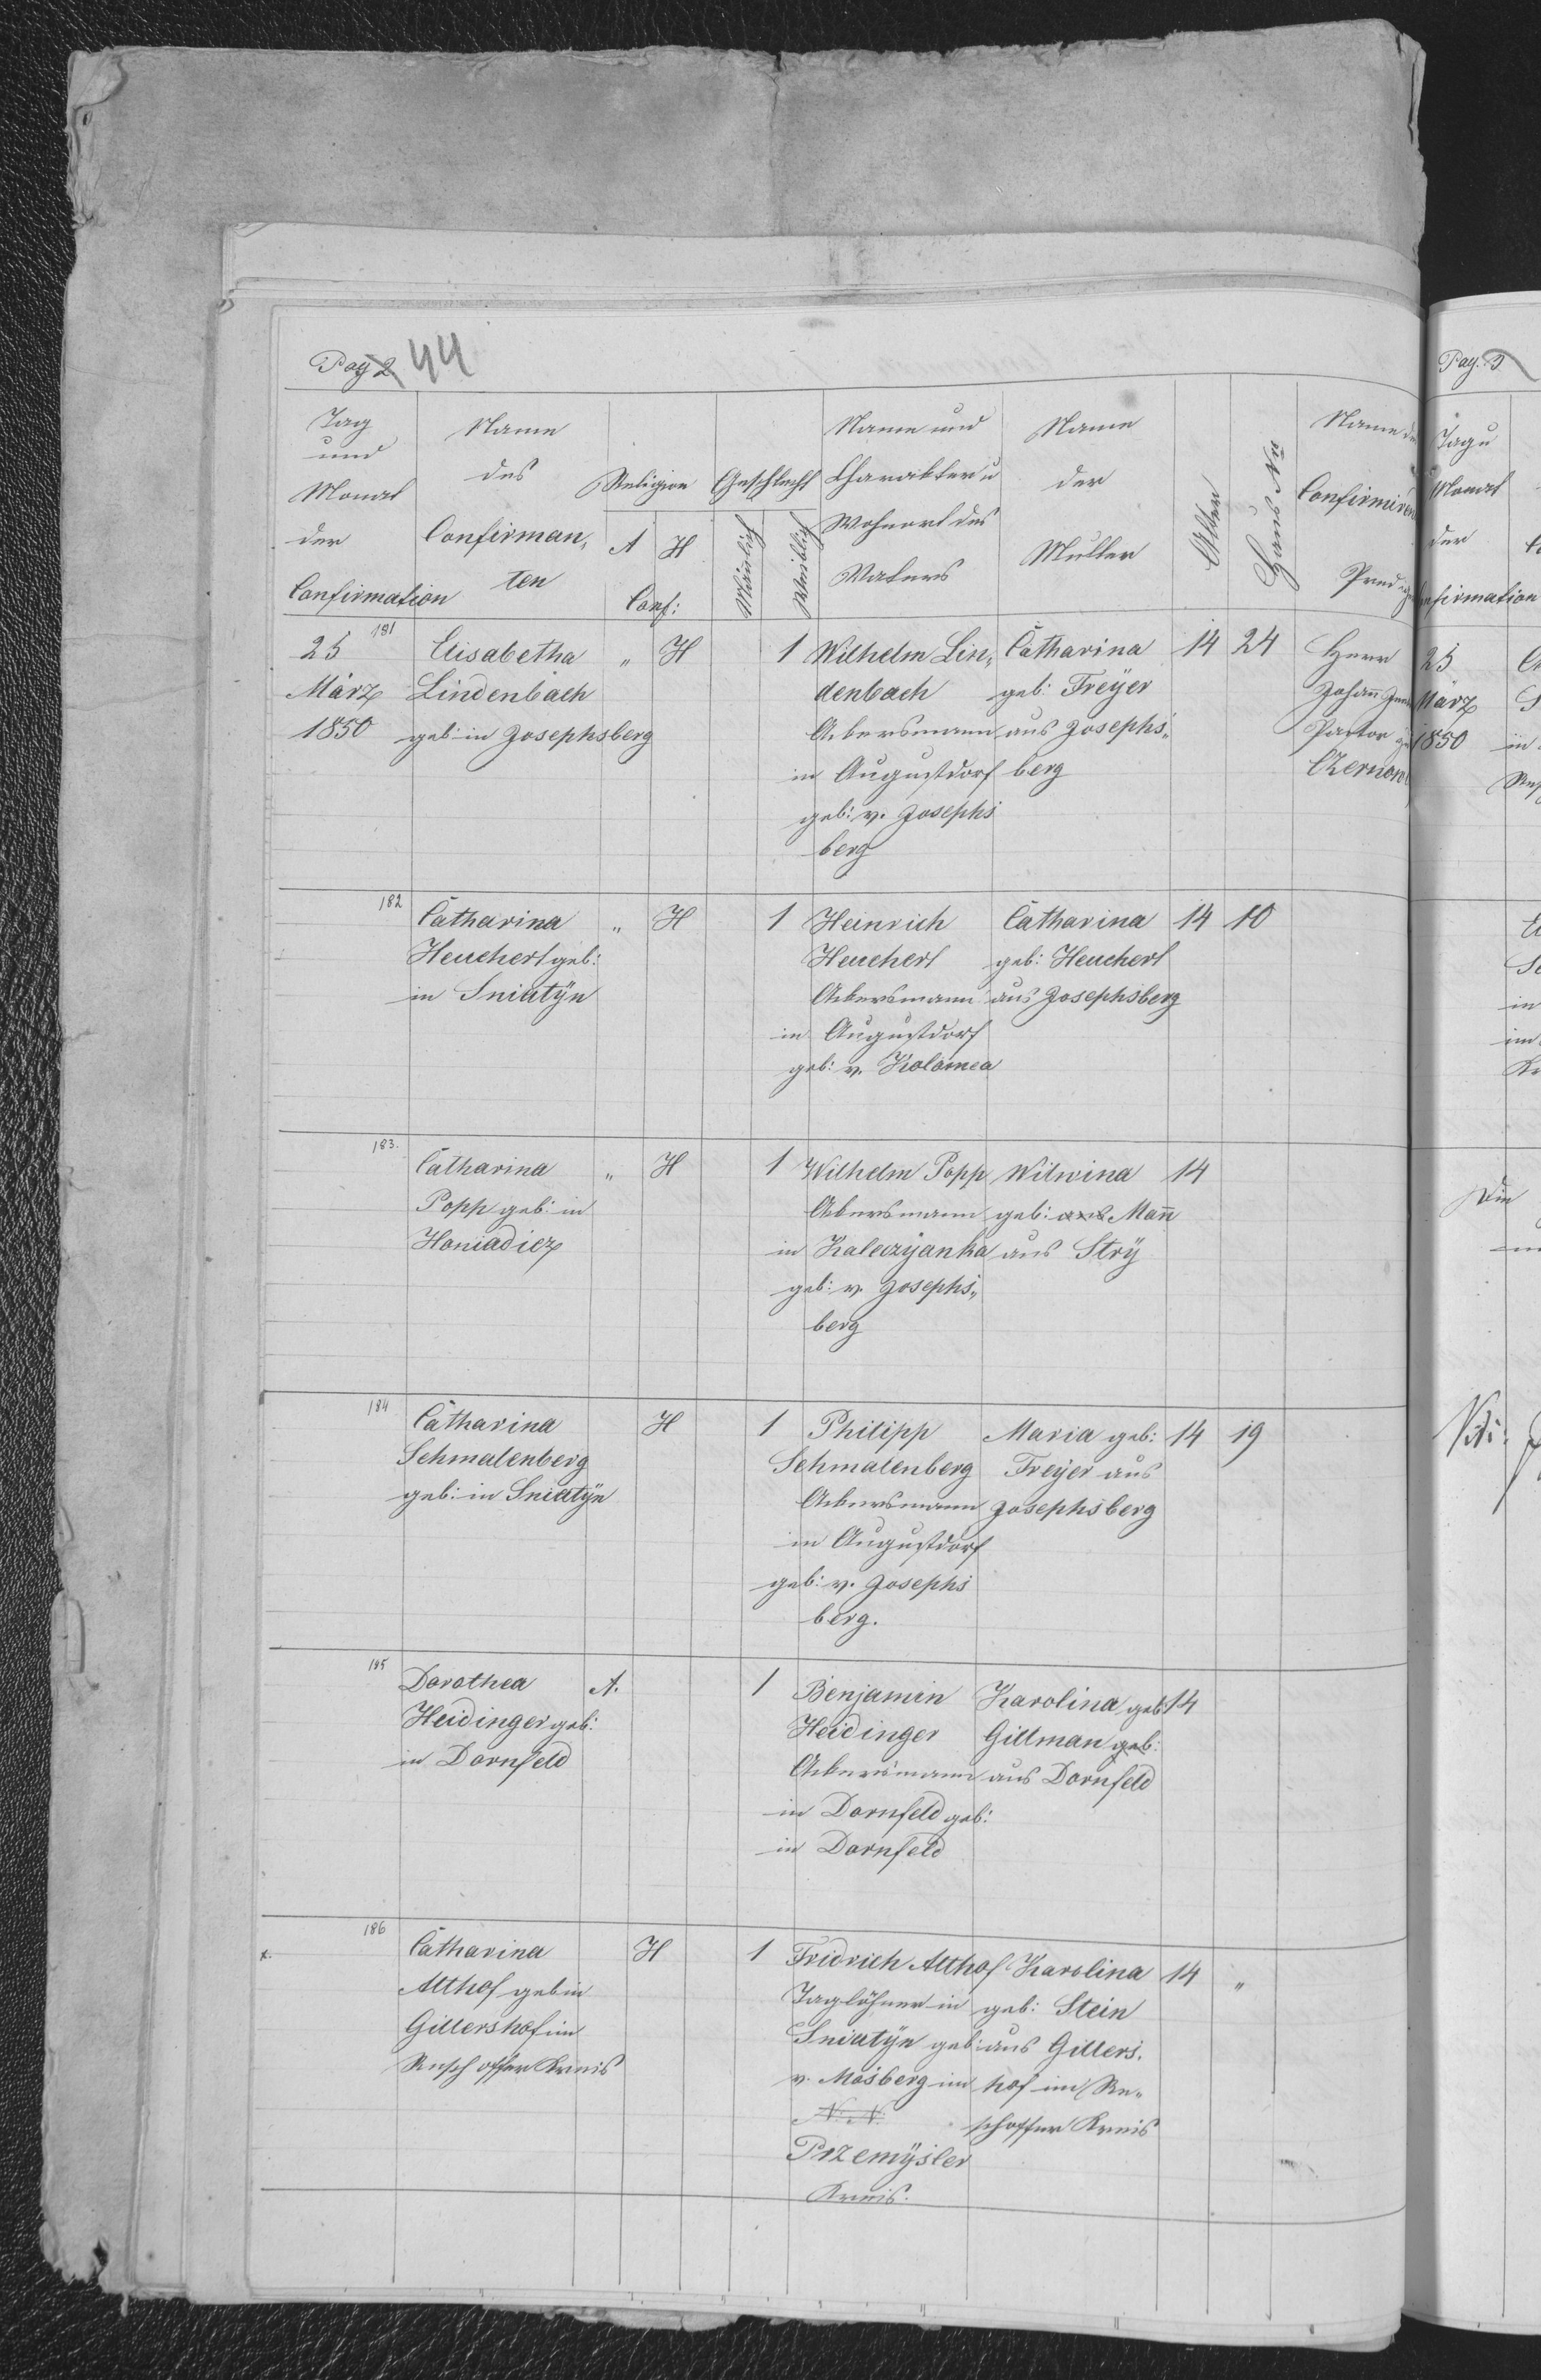 Pag 2 44
Tag
und
Monat
der
Confirmation
Name
des
Confirman,
ten
Religion
A H
Conf:
Geschlecht
Mänlich
Weiblich
Name und
Charakter u
Wohnort des
Vaters
Name
der
Mutter
Alter
Haus No
Name de
Confirmiren
Pred
25
März
1850
181
Elisabetha
Lindenbach
geb: in Josephsberg
" H 1
Wilhelm Lin,
denbach
Ackersmann
in Augustdorf
geb: v. Josephs
berg
Catharina
geb: Freÿer
aus Josephs,,
berg
14 24
Herr
Johann
Pastor
Czernow
182
Catharina
Heuchert geb:
in Sniatÿn
" H 1
Heinrich
Heuchert
Ackersmann
in Augustdorf
geb: v. Kolomea
Catharina
geb: Heuchert
aus Josephsberg
14 10
183.
Catharina
Popp geb: in
Haniadicz
" H 1
Wilhelm Popp
Ackersmann
in Kaleczÿanka
geb: v. Josephs,,
berg
Wilwina
geb: aus Mañ
aus Strÿ
14
184
Catharina
Schmalenberg
geb: in Sniatÿn
H 1
Philipp
Schmalenberg
Ackersmann
in Augustdorf
geb: v. Josephs
berg.
Maria geb:
Freÿer aus
Josephsberg
14 19
185
Dorothea
Heidinger geb:
in Dornfeld
A. 1
Benjamin
Heidinger
Ackersmann
in Dornfeld geb:
in Dornfeld
Karolina geb
Gillman geb:
aus Dornfeld
14
186
x.
Catharina
Althof geb in
Gillershof im
Resch offer Kreis
H 1
Fridrich Althof
Taglöhner in
Sniatÿn geb:
v. Mosberg im
N. N.
Przemÿsler
Kreis.
Karolina
geb: Stein
aus Gillers.
hof im Re,,
schoffer Kreis
14 "
Pag. 3
Tag u
Monat
der
nfirmation
25
März
1850
in
in
im
Die